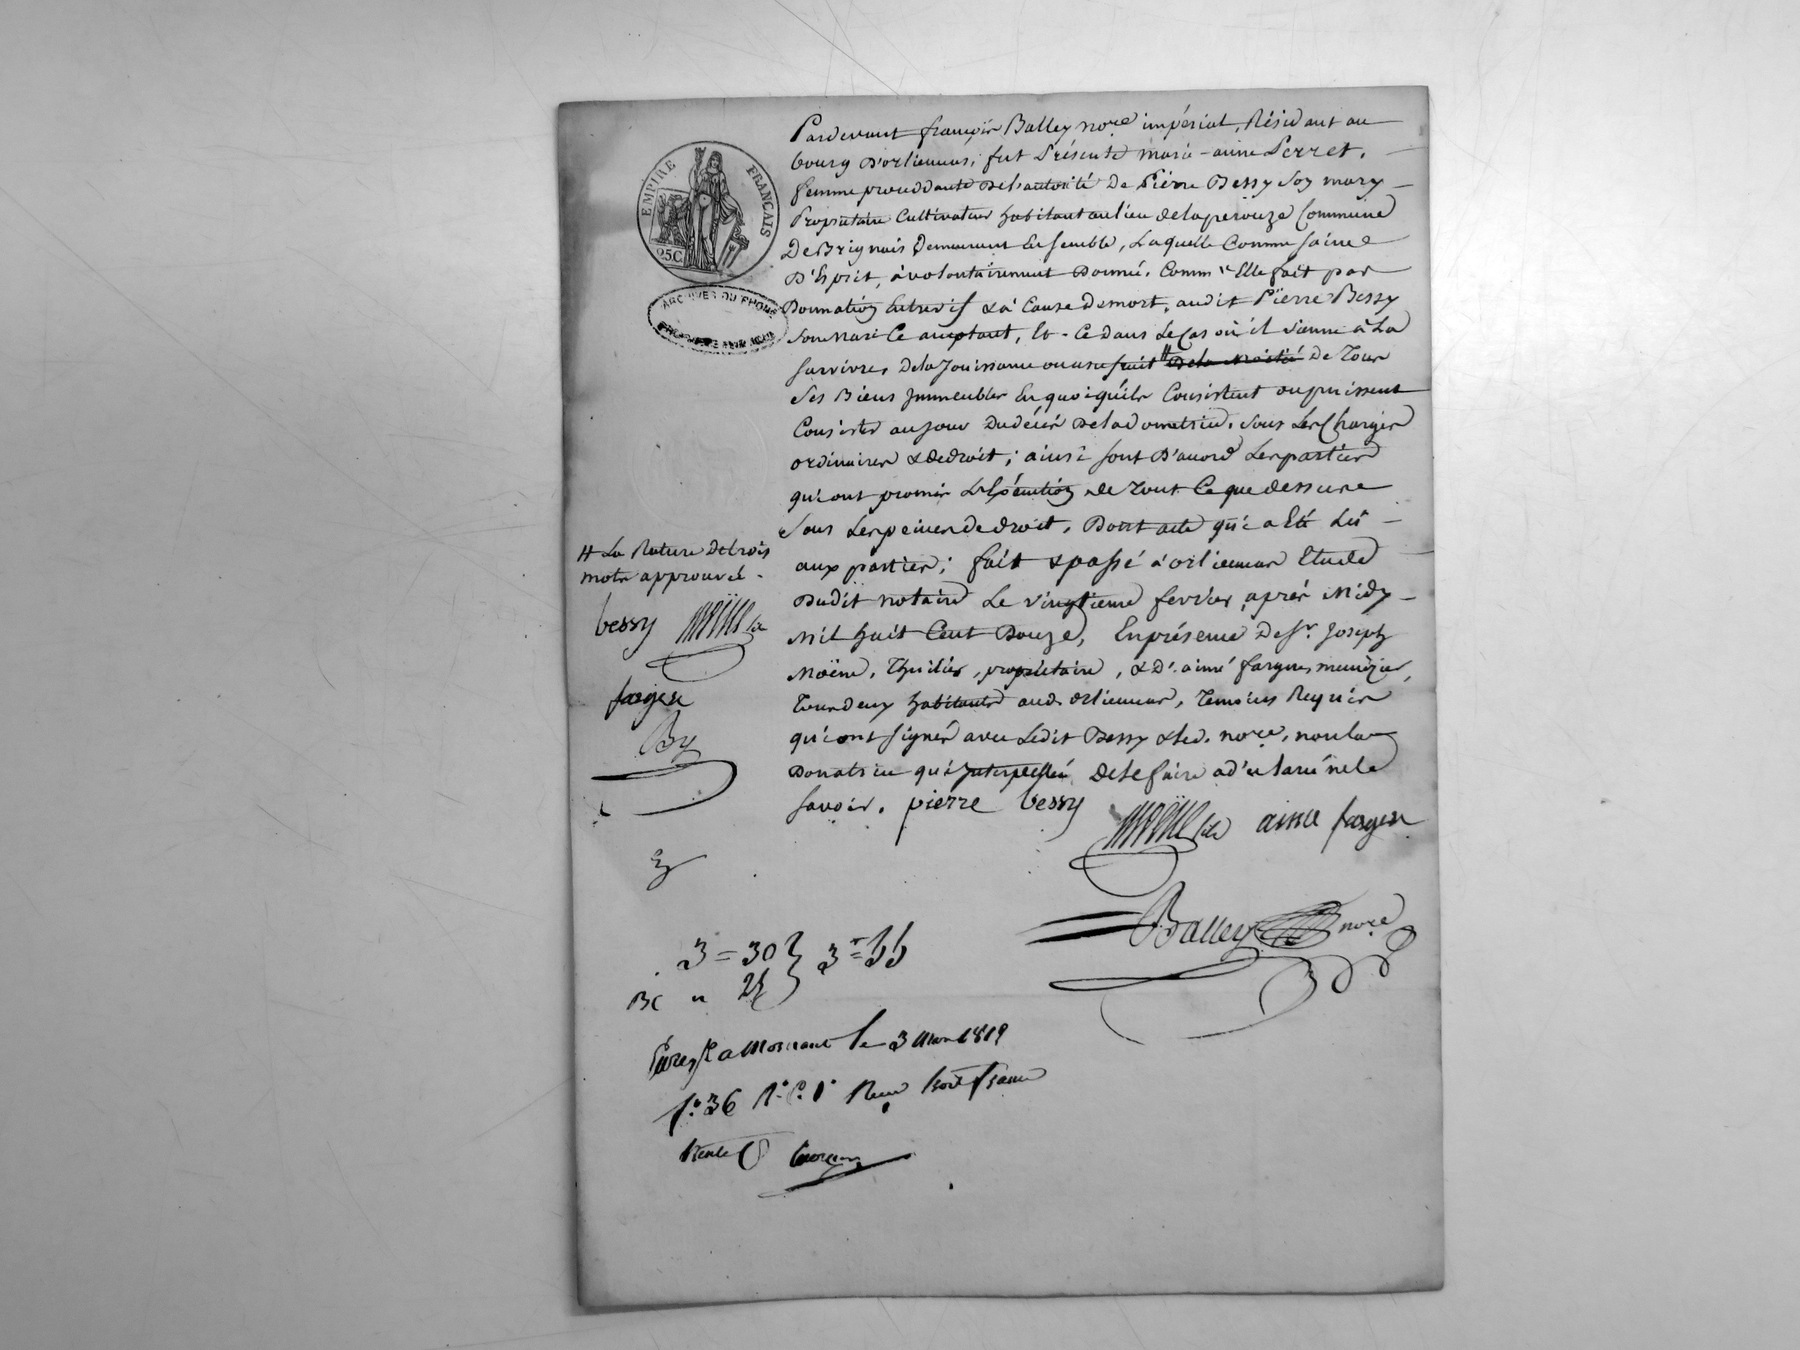 EMPIRE FRANÇAIS
25C.
ARCHIVES DU RHONE
Pardevant françois Balley no.re impérial, Résidant au
bourg D'orliennas, fut Présente marie-anne Perret,
femme procedante de l'autorité De Pierre Bessy Son mary
Propriétaire Cultivateur habitant au lieu de laperouze Commune
De Brignais Demeurant Ensemble, Laquelle Comme saine
D'Esprit, à volontairement Donné, Comm'' Elle fait par
Donnation Entrevif & à Cause Demort, audit Pierre Bessy
Son Mari Ce aceptant, Et Ce Dans Le Cas où il vienne à La
survivre, De la Jouissance ou usufruit # De la Moitié De Tous
Ses Biens Immeubles En quoi qu'ils Consistent ou puissent
Consister au jour Dudécès De la donatrice, sous Les Charges
ordinaires & de droit; ainsi sont D'accord Les parties
qui ont promis L'Exécution de Tout Ce que dessus
sous Les peines de droit, Dont acte qui a Eté Lu
aux parties; fait & passé à orliennas Etude
Dudit notaire Le vingtieme fevrier, après Midy
Mil huit Cent Douze, En présence De Sr. Joseph
Moëne, Thuilier, propriétaire, & Dr. aimé farges, menuzier,
Tous deux habitants aud. orliennas, Temoins Requis
qui ont signés avec Ledit Bessy & led. no.re, non la
Donatrice qui Interpellée de le faire a déclaré ne le
savoir.
# La Rature De trois
mots approuvée.
bessy
farges
By
pierre bessy
aimé farges
Balley no.re
3 = 30 } 3 = 55
25
Enreg.é a Mornant le 3 Mars 1819
f.o 36 R.o C. 1.o Recu trois francs
trente C